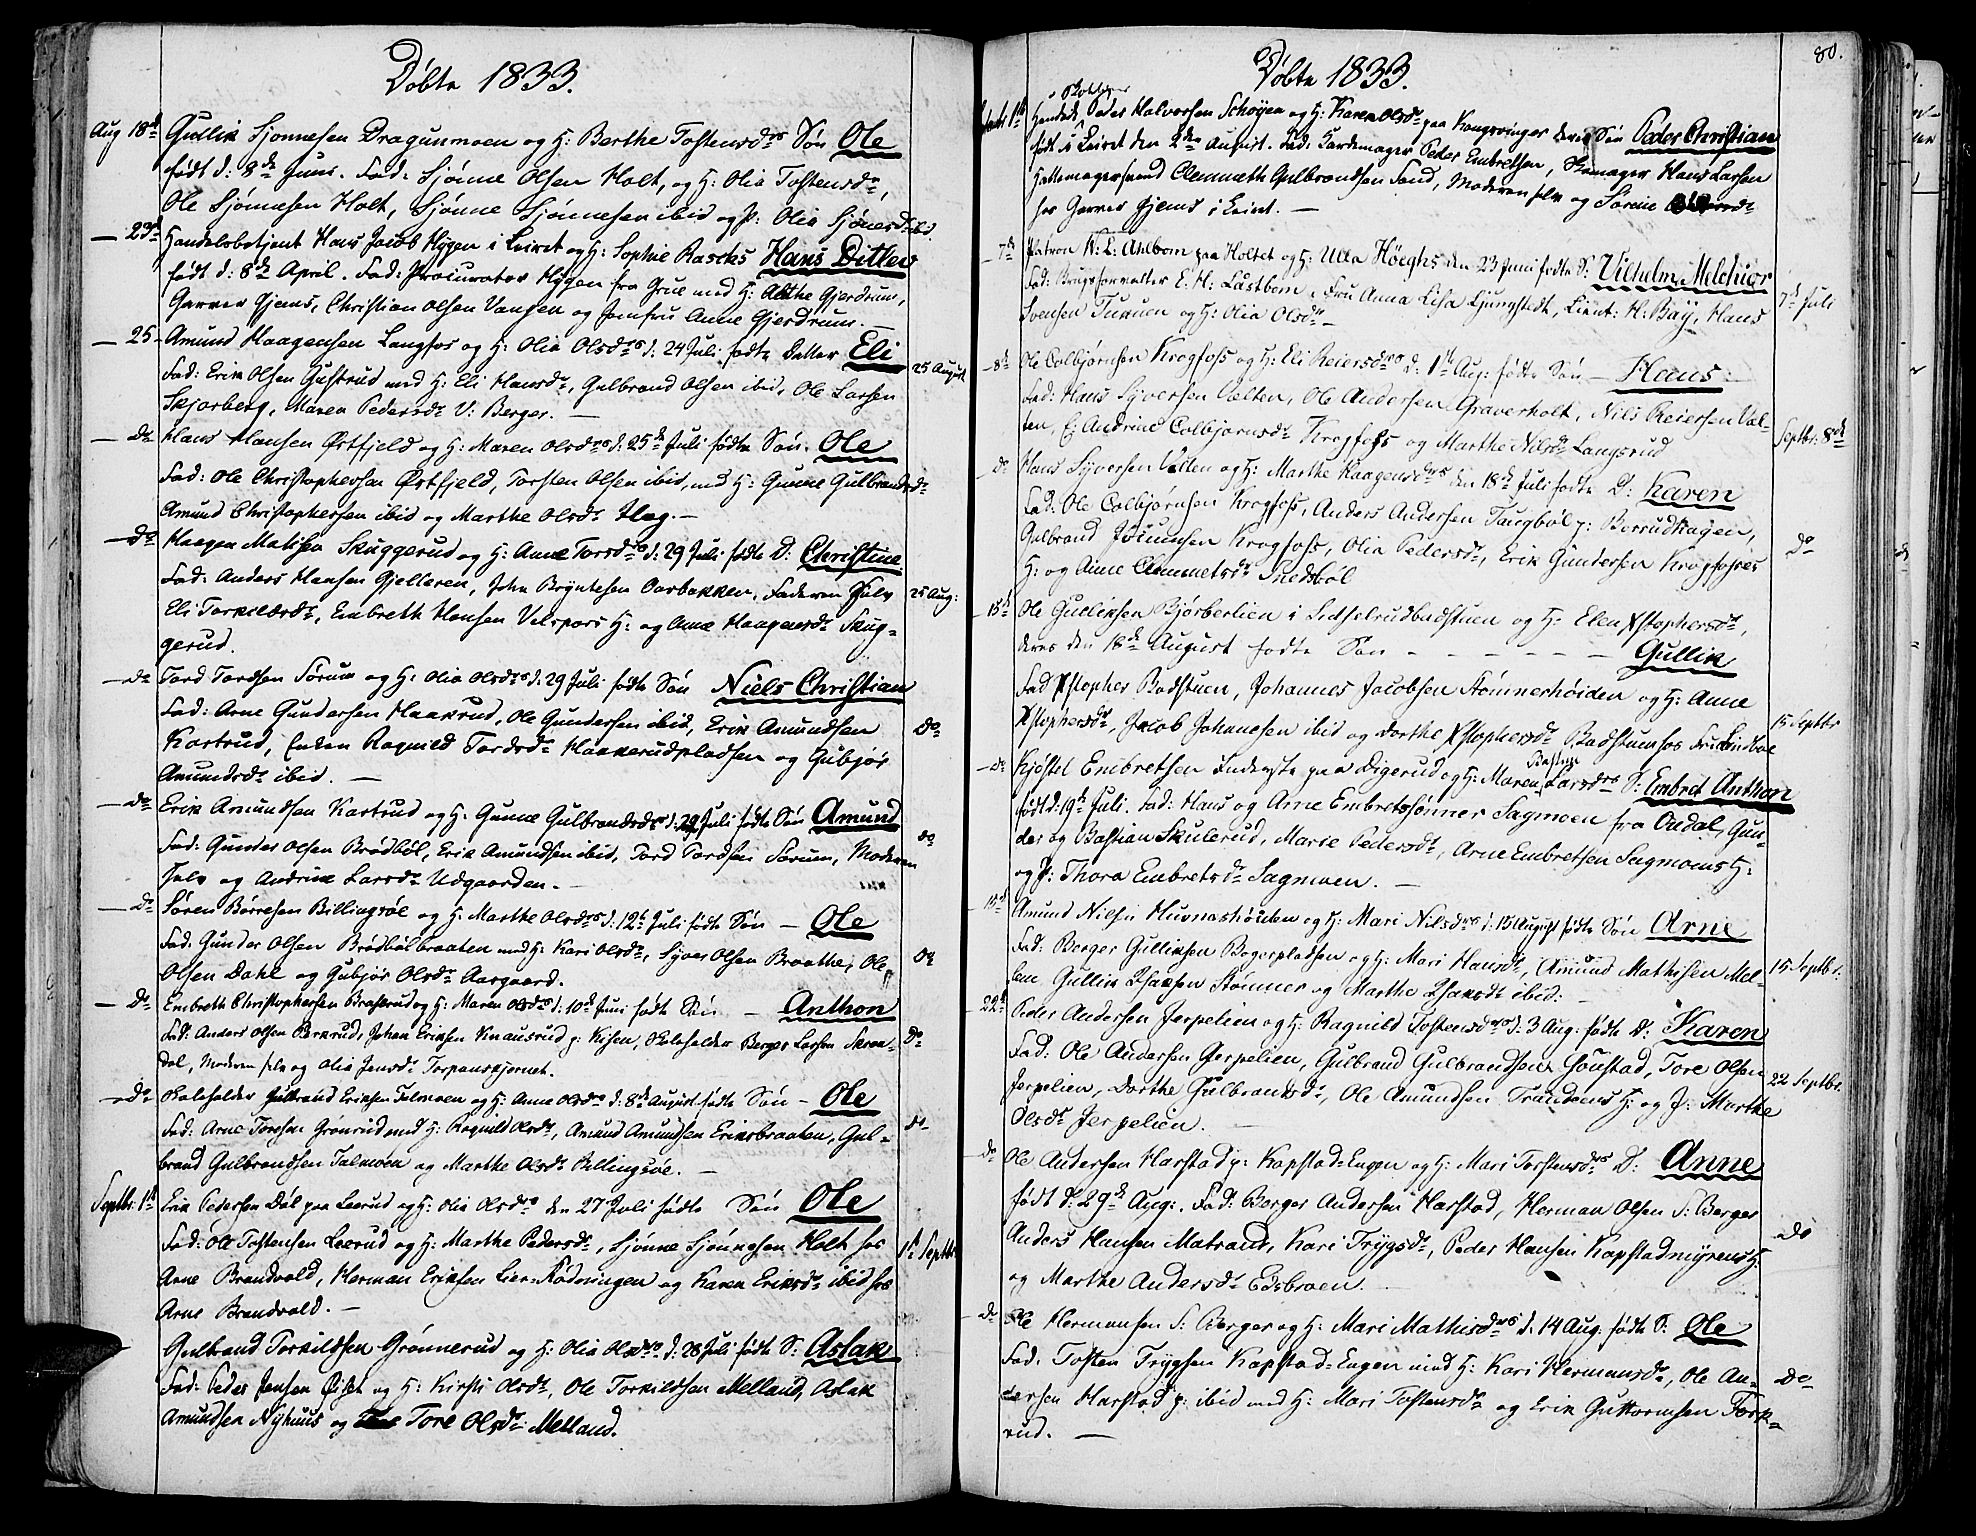 Döbte 1833.
Aug 18d Gullik Sjonnesen Dragunmoen og H: Berthe Tostensdrs Sön Ole
födt d: 8de Juni. Fad: Sjönne Olsen Holt, og H: Olia Tostensdr,
Ole Sjönnesen Holt, Sjönne Sjönnesen ibid og P: Olia Sjönesdr ibid.
— 23d Handelsbetjent Hans Jacob Hygen i Leiret og H: Sophie Raschs Hans Ditlev
födt d: 8de April. Fad: Procurator Hygen fra Grue med H: Alethe Gjerdrum,
Garver Gjems, Christian Olsen Vangen og Jomfru Anne Gjerdrum. —
— 25 - Amund Haagensen Langfos og H: Olia Olsdrs d: 24 Juli födte Datter Eli
25 August
Fad: Erik Olsen Gustrud med H: Eli Hansdr, Gulbrand Olsen ibid, Ole Larsen
Skjarberg, Maren Pedersdr V: Berger. —
— do Hans Hansen Östfjeld og H: Maren Olsdrs d: 25de Juli födte Sön. Ole
Fad: Ole Christophersen Östfjeld, Torsten Olsen ibid, med H: Gunne Gulbrandsdr
Amund Christophersen ibid og Marthe Olsdr Hag. —
— do Haagen Matisen Skuggerud og H: Anne Torsdrs d: 29 Juli födte D: Christine
Fad: Anders Hansen Gjelleren, John Bryntesen Aarbakken, Faderen selv
25 Aug:
Eli Torkildsdr, Embreth Hansen Velspors H: og Ane Haagensdr Skug-
gerud.
— do Tord Tordsen Sörum og H: Olia Olsdrs d: 29 Juli födte Sön Niels Christian
Fad: Arne Gundersen Haakrud, Ole Gundersen ibid, Erik Amundsen
do
Kartrud, Enken Ragnild Tordsdr Haakerudpladsen og Gubjör
Amundsdr ibid. —
— do Erik Amundsen Kartrud og H: Gunne Gulbrandsdrs d: 29 Juli födte Sön Amund
do
Fad: Gunder Olsen Brödböl, Erik Amundsen ibid, Tord Tordsen Sörum, Moderen
selv og Andrine Larsdr Udgaarden. —
— do Sören Börresen Billingsöe og H: Marthe Olsdrs d: 12te Juli födte Sön — Ole
Fad: Gunder Olsen Brödbölbraaten med H: Kari Olsdr, Syver Olsen Braathe, Ole
do
Olsen Dahl og Gubjör Olsdr Aargaard.
— do Embreth Christophersen Brasterud og H: Maren Olsdrs d: 10de Juni födt Sön — Anthon
Fad: Anders Olsen Berrud, Johan Eriksen Knausrud p: Kisen, Skoleholder Berger Larsen Skran-
do
dal, Moderen selv og Olia Jensdr Torpanskjernet.
— do Skoleholder Gulbrand Eriksen Talmoen og H: Anne Olsdrs d: 8de August födte Sön — Ole
Fad: Arne Toresen Grönrud med H: Ragnild Olsdr, Amund Amundsen Eriksbraaten, Gul-
do
brand Gulbrandsen Talmoen og Marthe Olsdr Billingsöe. —
Septbr: 1st Erik Pedersen Döl paa Leerud og H: Olia Olsdrs den 27 Juli födte Sön Ole
Fad: Ole Tostensen Leerud og H: Marthe Pedersdr, Sjönne Sjönnesen Holt, hos
1st Septbr
Arne Brandvold, Herman Eriksen Lier-Rödningen og Karen Eriksdr ibid hos
Arne Brandvold. —
Gulbrand Torkildsen Grönnerud og H: Olia Olsdrs d: 28 Juli födte S: Aslak
Fad: Peder Jensen Öiset og H: Kirsti Olsdr, Ole Torkildsen Melland, Aslak
Amundsen Nyhuus og Tore Olsdr Melland.
Döbte 1833.
80.
Peder Halvorsen Schöyen og H: Karen Olsdr paa Kongsvinger deres Sön Peder Christian
födt i Leiret den 2den August. Fad: Peder Embretsen, Skomager Hans Larsen
Hattemagersvend Clemmeth Gulbrandsen Sand, Moderen selv og Sörine
hos Garver Gjems i Leiret. —
— 7de Patron W: L: Ahlbom paa Holtet og H: Ulla Höeghs den 23 Juni födte S: Vilhelm Melchior
Fad: Brugsforvalter E. H: Låstbom, Fru Anna Lisa Ljungstedt, Lieut: H: Bay, Hans
7de Juli
Svensen Turuen og H: Olia Olsdr —
— 8de Ole Colbjörnsen Krogfoss og H: Eli Reiersdrs d: 1ste Aug: födte Sön — Hans.
Fad: Hans Syversen Valten, Ole Andersen Graverholt, Nils Reiersen Val-
ten, E: Andrine Colbjörnsdr Krogfoss og Marthe Nilsdr Langsrud
Septbr: 8de
do Hans Syversen Velten og H: Marthe Haagensdrs den 18de Juli födte D: Karen
Fad: Ole Colbjörnsen Krogfoss, Anders Andersen Taugböl p: Berrudhagen,
Gulbrand Jörunsen Krogfoss, Olia Pedersdr, Erik Gundersen Krogfosses
do
H: og Anne Clemmetsdr Snedsböl
— 15d Ole Gulliksen Bjørberlien i Sidselrudbadstuen og H: Elen Xstophersdr,
deres den 18de August födte Sön - - - - - Gullik
Fad Xstopher Badstuen, Johannes Jacobsen Stömnerhöiden og H: Anne
Xstophersdr, Jacob Johannesen ibid og Dorthe Xstophersdr Badstuen hos
15 Septbr
— do Kjostel Embretsen Inderste paa Digerud og H: Maren Larsdrs S: Embret Anthon
födt d: 19de Juli. Fad: Hans og Arne Embretssönner Sagmoen fra Oudal, Gun-
der og Bastian Skulerud, Marie Pedersdr, Arne Embretsen Sagmoens H:
og P: Thora Embretsdr Sagmoen. —
— 15d Amund Nilsen Huvnashöiten og H: Mari Nilsdrs d: 15 August födte Sön Arne
Fad: Berger Gulliksen Bogerpladsen og H: Mari Hansdr, Amund Mathisen Mel-
15 Septbr.
len Gullik Isaksen Stömner og Marthe Isaksdr ibid: —
22d Peder Andersen Jerpelien og H: Ragnild Tostensdrs d: 3 Aug: födte D: Karen
Fad: Ole Andersen Gerpelien, Gulbrand Gulbrandsen Gönstad, Tore Olsen
Jerpelien, Dorthe Gulbransdr, Ole Amundsen Trandems H: og P: Marthe
22 Septbr.
Olsdr Jerpelien. —
do Ole Andersen Harstad p: Kapstad-Engen og H: Mari Torstensdrs D: Anne
födt d: 29de Aug:. Fad: Berger Andersen Harstad, Herman Olsen S: Berger
Anders Hansen Matrand, Kari Trygsdr, Peder Hansen Kapstadmyrens H.
do
og Marthe Andersdr Edsbroen.
— do Ole Hermansen S: Berger og H: Mari Mathisdrs d: 14 Aug. födte S: Ole
Fad. Tosten Trygsen Kapstad-Engen med H: Kari Hermansdr, Ole An-
do
dersen Harstad p: ibid med H: Mari Tostensdr og Erik Guttormsen Tork-
rud. —